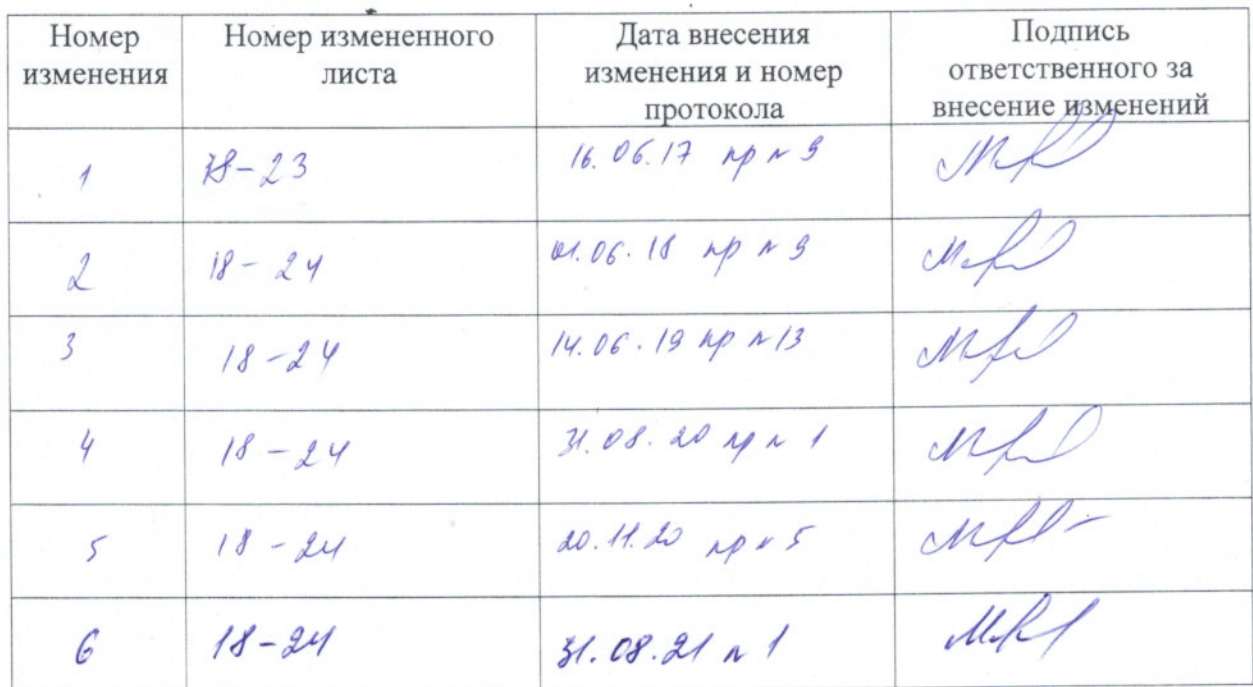 Номер изменения
Номер измененного листа
Дата внесения изменения и номер протокола
Подпись ответственного за внесение изменений
1
18-23
16.06.17 пр n 9
2
18-24
01.06.18 пр n 9
3
18-24
14.06.19 пр n 13
4
18-24
31.08.20 пр n 1
5
18-24
20.11.20 пр n 5
6
18-24
31.08.21 n 1